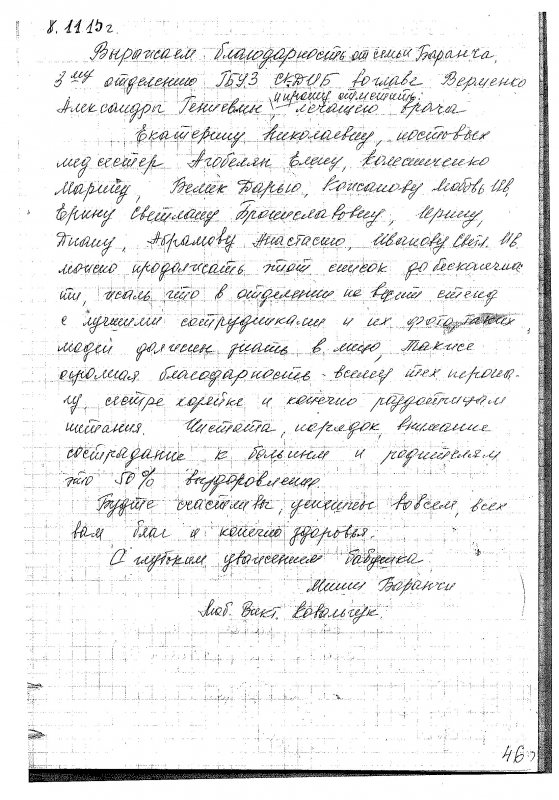 8.11.15г
Выражаем благодарность от семьи Баранча,
3му отделению ГБУЗ СКДИБ во главе Верменко
Александры Гениевны, прошу отметить: лечащего врача
Екатерину Николаевну, постовых
мед сестер Агобелян Елену, Колесниченко
Марину, Велик Дарью, Кансанову Любовь Ив,
Ерину Светлану Брониславовну, Ирину,
Диану, Абрамову Анастасию, Иванову Свет. Ив
можно продолжать этот список до бесконечнос
ти, жаль что в отделении не висит стенд
с лучшими сотрудниками и их фото, таких
людей должен знать в лицо, также
огромная благодарность всему тех персона
лу, сестре хозяйке и конечно раздатчицам
питания. Чистота, порядок, внимание
сострадание к больным и родителям
это 50% выздоровления.
Будте счастливы, успешны во всем, всех
вам благ и конечно здоровья.
С глубоким уважением бабушка
Миши Баранчи
Люб. Викт. Ковальчук.
46